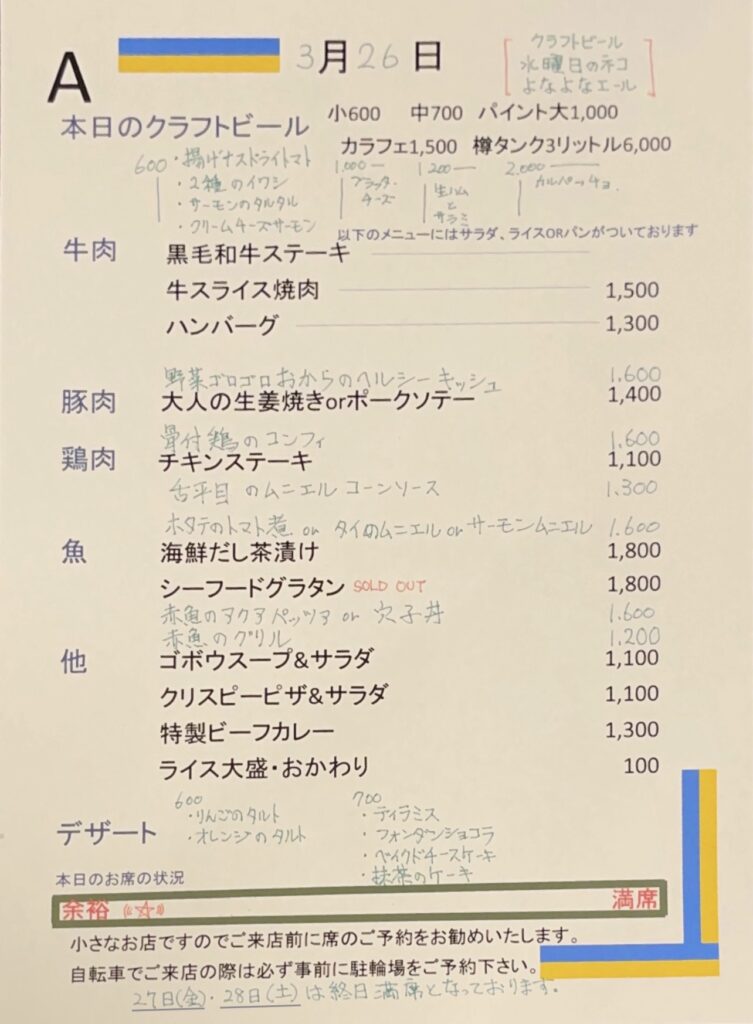 A
3月26日
クラフトビール
水曜日のネコ
よなよなエール
本日のクラフトビール 小600 中700 パイント大1,000
カラフェ1,500 樽タンク3リットル6,000
600 ・揚げナスドライトマト
・2種のイワシ
・サーモンのタルタル
・クリームチーズサーモン
1,000
ブラッタチーズ
1200
生ハムとサラミ
2,000
カルパッチョ
以下のメニューにはサラダ、ライスORパンがついております
牛肉 黒毛和牛ステーキ
牛スライス焼肉 1,500
ハンバーグ 1,300
野菜ゴロゴロおからのヘルシーキッシュ 1.600
豚肉 大人の生姜焼きorポークソテー 1,400
骨付鶏のコンフィ 1.600
鶏肉 チキンステーキ 1,100
舌平目のムニエル コーンソース 1.300
ホタテのトマト煮 or タイのムニエル or サーモンムニエル 1.600
魚 海鮮だし茶漬け 1,800
シーフードグラタン SOLD OUT 1,800
赤魚のアクアパッツァ or 穴子丼 1.600
赤魚のグリル 1.200
他 ゴボウスープ&サラダ 1,100
クリスピーピザ&サラダ 1,100
特製ビーフカレー 1,300
ライス大盛・おかわり 100
デザート
600
・りんごのタルト
・オレンジのタルト
700
・ティラミス
・フォンダンショコラ
・ベイクドチーズケーキ
・抹茶のケーキ
本日のお席の状況
余裕 ((☆)) 満席
小さなお店ですのでご来店前に席のご予約をお勧めいたします。
自転車でご来店の際は必ず事前に駐輪場をご予約下さい。
27日(金)・28日(土)は終日満席となっております.